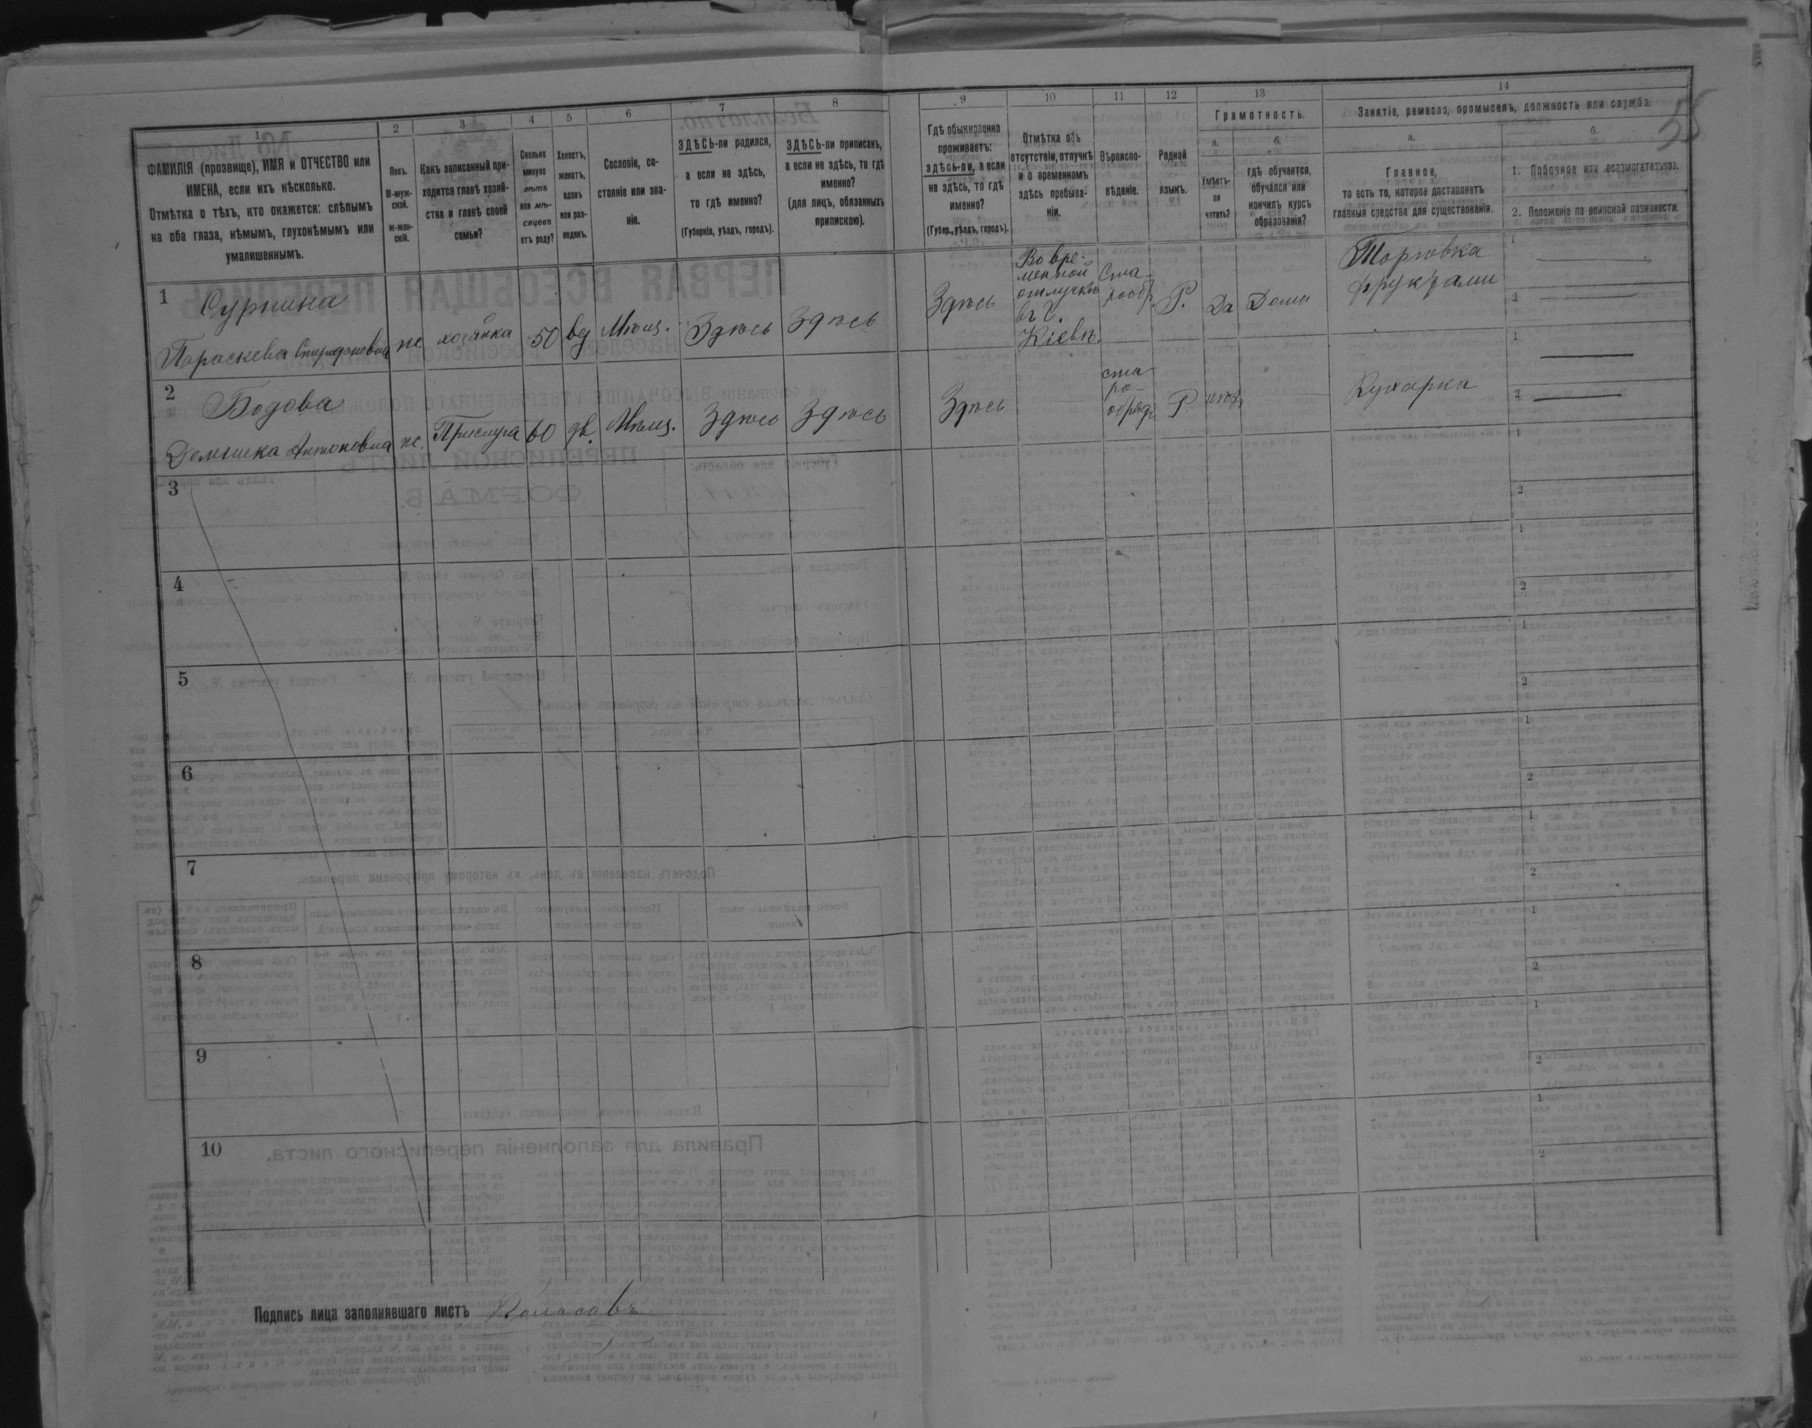 55
1 2 3 4 5 6 7 8 9 10 11 12 13 14
ФАМИЛІЯ (прозвище), ИМЯ и ОТЧЕСТВО или
ИМЕНА, если ихъ нѣсколько.
Отмѣтка о тѣхъ, кто окажется: слѣпымъ
на оба глаза, нѣмымъ, глухонѣмымъ или
умалишеннымъ.
Полъ.
М-муж-
ской.
Ж-жен-
скій.
Какъ записанный при-
ходится главѣ хозяй-
ства и главѣ своей
семьи?
Сколько
минуло
лѣтъ
или мѣ-
сяцевъ
отъ роду?
Холостъ,
женатъ,
вдовъ
или раз-
веденъ.
Сословіе, со-
стояніе или зва-
ніе.
ЗДѢСЬ-ли родился,
а если не здѣсь,
то гдѣ именно?
(Губернія, уѣздъ, городъ).
ЗДѢСЬ-ли приписанъ,
а если не здѣсь, то гдѣ
именно?
(для лицъ, обязанныхъ
припискою).
Гдѣ обыкновенно
проживаетъ:
здѣсь-ли, а если
не здѣсь, то гдѣ
именно?
(Губер., уѣздъ, городъ).
Отмѣтка объ
отсутствіи, отлучкѣ
и о временномъ
здѣсь пребыва-
ніи.
Вѣроиспо-
вѣданіе.
Родной
языкъ.
Грамотность.
а.
Умѣетъ-
ли
читать?
б.
гдѣ обучается,
обучался или
кончилъ курсъ
образованія?
Занятіе, ремесло, промыселъ, должность или служба.
а.
Главное,
то есть то, которое доставляетъ
главныя средства для существованія.
б.
1. Побочное или вспомогательное.
2. Положеніе по воинской повинности.
1
Сурнина
Параскева Спиридоновна
ж.
хозяйка
50
вд
Мѣщ.
Здѣсь
Здѣсь
Здѣсь
Во вре-
менной
отлучкѣ
въ г.
Кіевѣ.
Ста-
рообр
Р.
Да
Дома
Торговка
фруктами
1
2
2
Бодова
Домника Антоновна
ж.
Прислуга
60
дв.
Мѣщ.
Здѣсь
Здѣсь
Здѣсь
ста-
ро-
обряд
Р
нѣтъ
Кухарка
1
2
3
1
2
4
1
2
5
1
2
6
1
2
7
1
2
8
1
2
9
1
2
10
1
2
Подпись лица заполнявшаго листъ